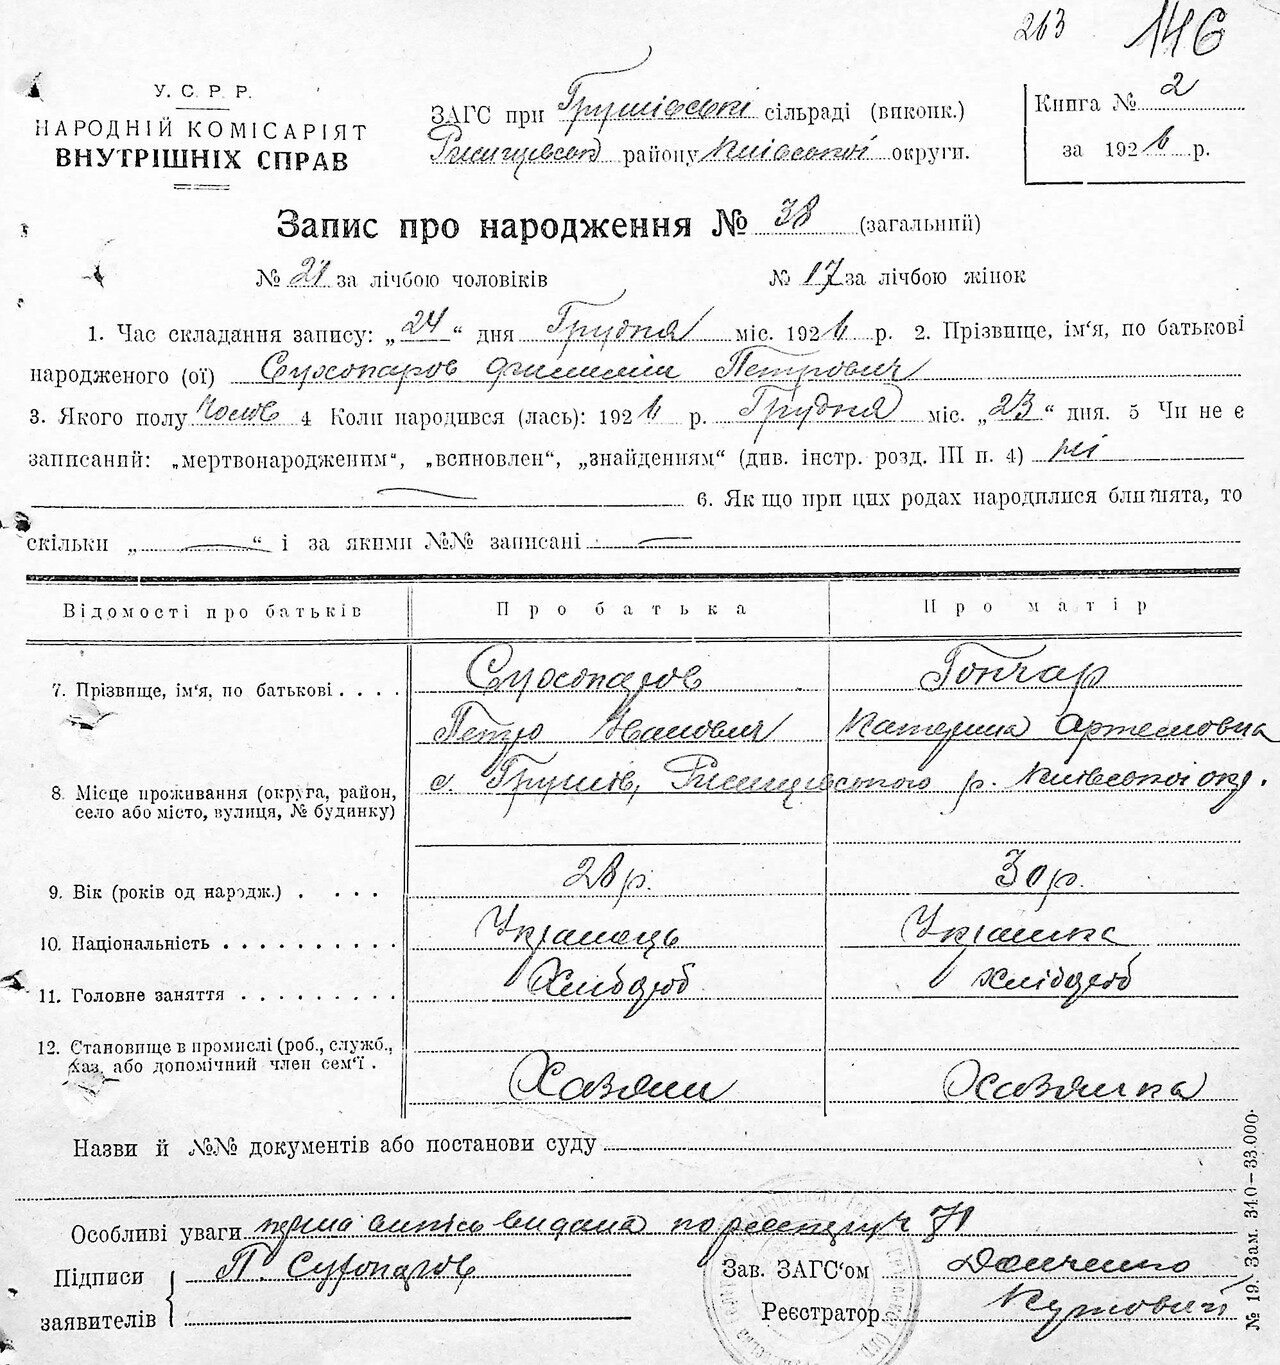 263 146
У. С. Р. Р.
НАРОДНІЙ КОМІСАРІЯТ
ВНУТРІШНІХ СПРАВ
ЗАГС при Грушівські сільраді (виконк.)
Ржищевськ району Київської округи.
Книга № 2
за 1926 р.
Запис про народження № 38 (загальний)
№ 21 за лічбою чоловіків № 17 за лічбою жінок
1. Час складання запису: „24“ дня Грудня міс. 1926 р. 2. Прізвище, ім‘я, по батькові
народженого (ої) Сухопаров Петрович
3. Якого полу чолов 4 Коли народився (лась): 1926 р. Грудня міс. „23“ дня. 5 Чи не є
записаний: „мертвонародженим“, „всиновлен“, „знайденням“ (див. інстр. розд. III п. 4) ні
6. Як що при цих родах народилися близнята, то
скільки „ “ і за якими №№ записані
Відомості про батьків Про батька Про матір
7. Прізвище, ім‘я, по батькові . . . . Сухопаров Гончар
Петро Іванович Катерина Артемовна
8. Місце проживання (округа, район, с. Грушів, Ржищевського р. Київської окр.
село або місто, вулиця, № будинку)
9. Вік (років од народж.) . . . . . 28 р. 30 р.
10. Національність . . . . . . . . . . Українець Українка
11. Головне заняття . . . . . . . . . Хлібороб хлібороб
12. Становище в промислі (роб., служб.,
хаз. або допомічний член сем‘ї . Хазяин Хазяйка
Назви й №№ документів або постанови суду
Особливі уваги перша випись видана по реєстру № 71
Підписи П. Сухопаров Зав. ЗАГС‘ом Донченко
заявителів Реєстратор Кутовий
№ 19. Зам. 340–33.000.